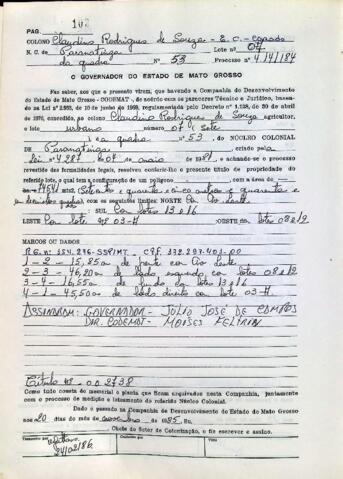 PAG. 102
COLONO Claudino Rodrigues de Souza - E.C. - Casado
N. C. de Paranatinga Lote nº 07
da quadra nº 53 Processo nº 4.141/84
O GOVERNADOR DO ESTADO DE MATO GROSSO
Faz saber, aos que o presente virem, que havendo a Companhia do Desenvolvimento
do Estado de Mato Grosso - CODEMAT, de acôrdo com os pareceres Técnico e Jurídico, basean-
do na Lei nº 2.925, de 10 de junho de 1969, regulamentada pelo Decreto nº 1.138, de 20 de abril
de 1970, concedido ao colono Claudino Rodrigues de Souza agricultor,
o lote urbano número 07 (Sete
da quadra nº 53, do NÚCLEO COLONIAL
DE Paranatinga criado pela
lei nº 4.287 de 07 de maio de 1981, e achando-se o processo
revestido das formalidades legais, resolveu conferir-lhe o presente título de propriedade do
referido lote, o qual tem a configuração de um polígono com a área de
quadrados) com os seguintes limites: NORTE
SUL Com lotes 13 e 16
LESTE Com lote nº 03-H OESTE com lotes 08 e 12
MARCOS OU DADOS
R.G. nº 154.296-SSP/MT - CPF.
1 - 2 - 15,85m de frente com
2 - 3 - 46,20m de lado esquerdo com lotes 08 e 12
3 - 4 - 16,55m de fundo com lotes 13 e 16
4 - 1 - 45,50m de lado direito com lote 03-H
ASSINARAM: GOVERNADOR - JÚLIO JOSÉ DE CAMPOS
DIR. CODEMAT - MOISÉS FELTRIN
Título nº 002738
Como tudo consta do memorial e planta que ficam arquivados nesta Companhia, juntamente
com o processo de medição e loteamento do referido Núcleo Colonial.
Dado e passado na Companhia de Desenvolvimento do Estado de Mato Grosso
aos 20 dias do mês de novembro de 1985. Eu,
Chefe do Setor de Colonização, o fiz escrever e assino.
24/02/86